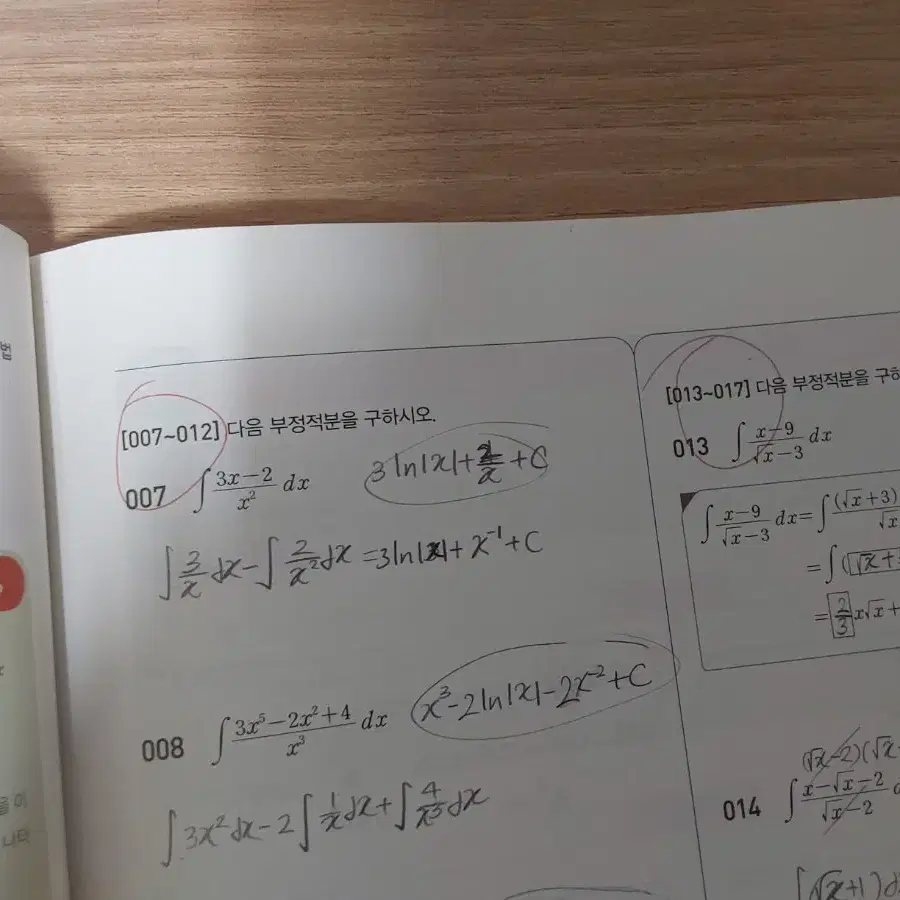 법
[007~012] 다음 부정적분을 구하시오.
007 ∫ (3x-2)/x² dx
3ln|x|+2/x+C
∫ 3/x dx - ∫ 2/x² dx = 3ln|x|+x⁻¹+C
008 ∫ (3x⁵-2x²+4)/x³ dx
x³-2ln|x|-2x⁻²+C
∫ 3x² dx - 2∫ 1/x dx + ∫ 4/x³ dx
[013~017] 다음 부정적분을 구하
013 ∫ (x-9)/(√x-3) dx
∫ (x-9)/(√x-3) dx = ∫ (√x+3)
√x
= ∫ (√x+3
= 2/3 x√x+
(√x-2)(√x
014 ∫ (x-√x-2)/(√x-2)
∫(√x+1)d
을 이
나타